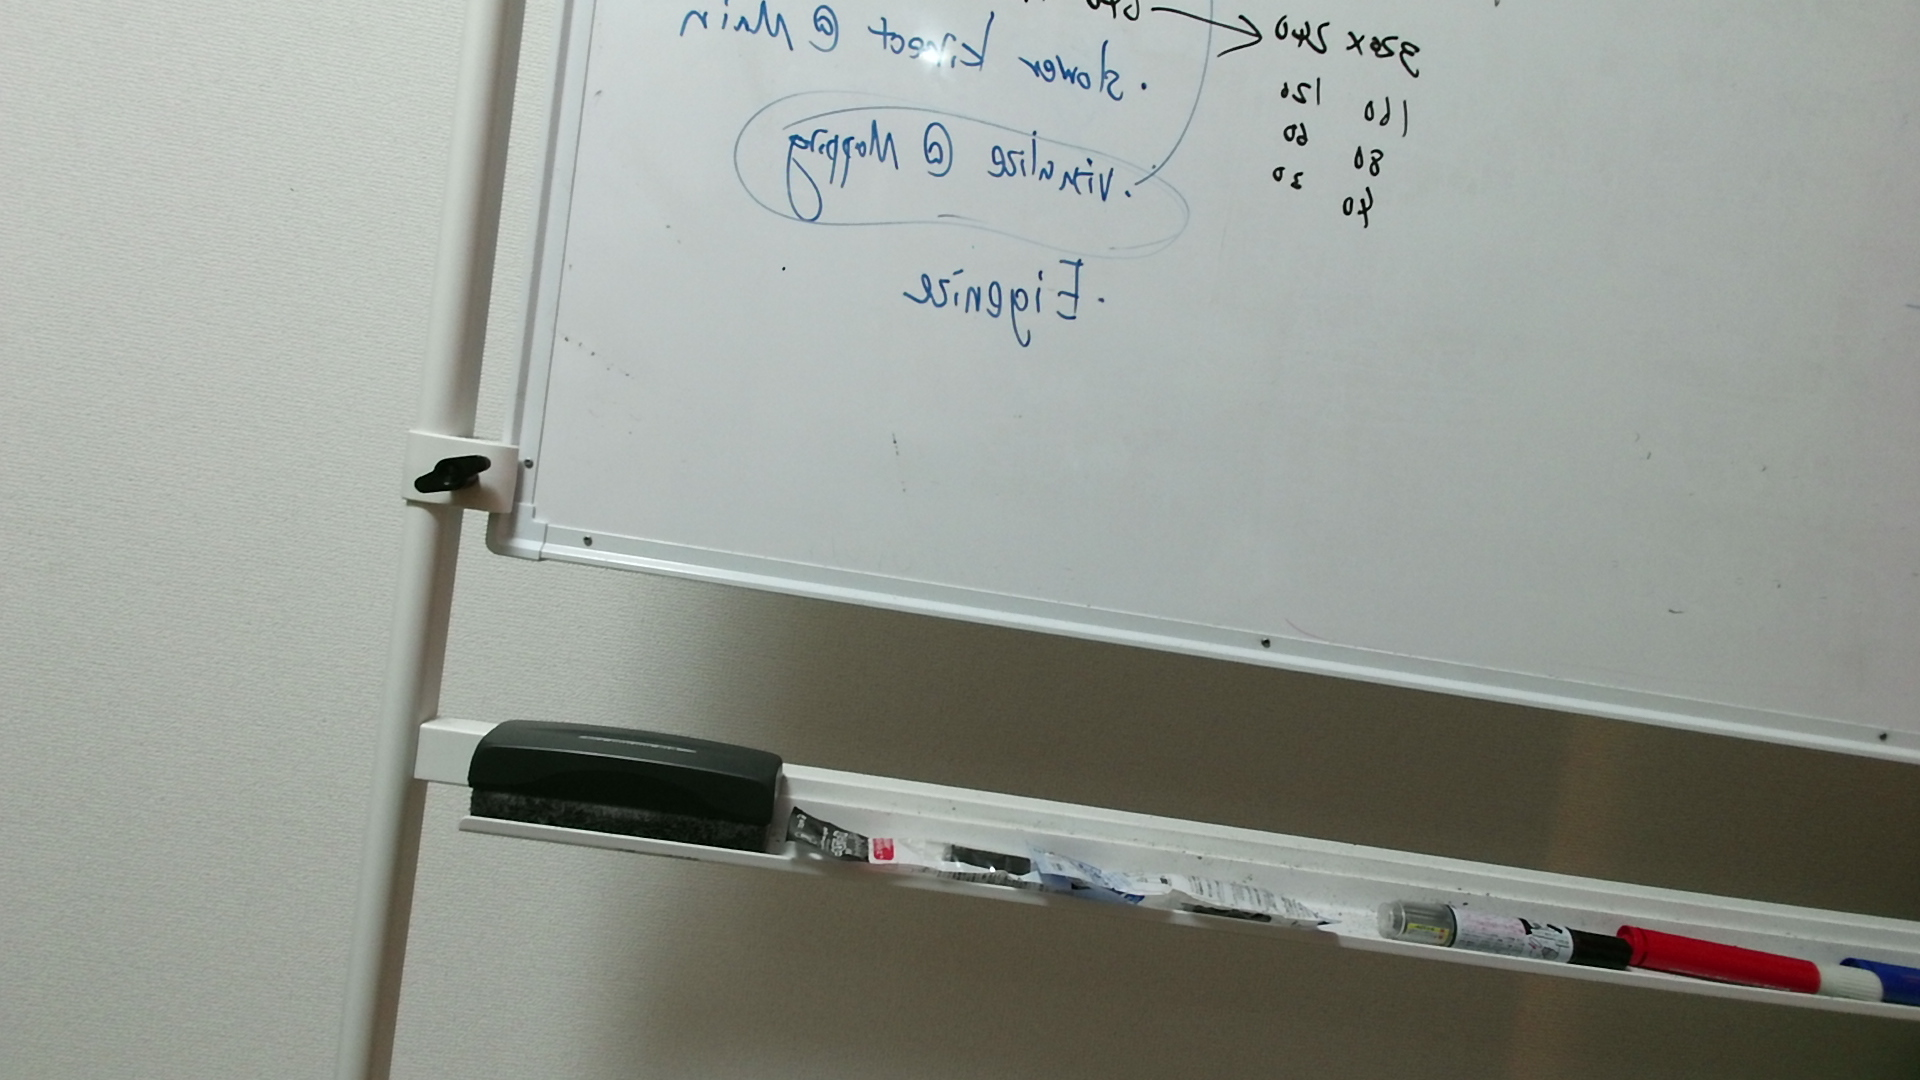 640 → 320 x 240
160 120
80 60
40 30
· Slower Kinect @ Main
· Visualize @ Mapping
· Eigenize